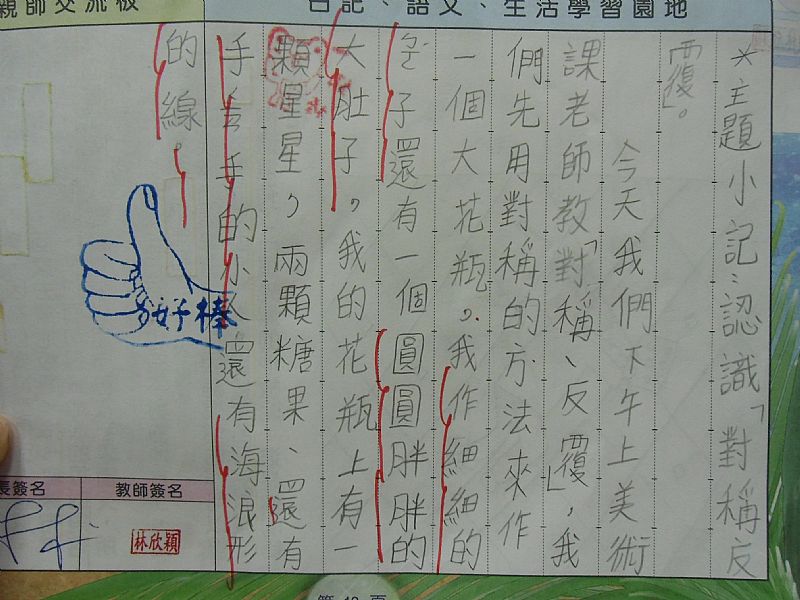 日記、語文、生活學習園地
＊主題小記：認識「對稱反
覆」。
今天我們下午上美術
課老師教「對稱、反覆」，我
們先用對稱的方法來作
一個大花瓶，我作細細的
子還有一個圓圓胖胖的
大肚子，我的花瓶上有一
顆星星，兩顆糖果、還有
手手的小人還有海浪形
的線。
親師交流板
好棒
長簽名
教師簽名
林欣穎